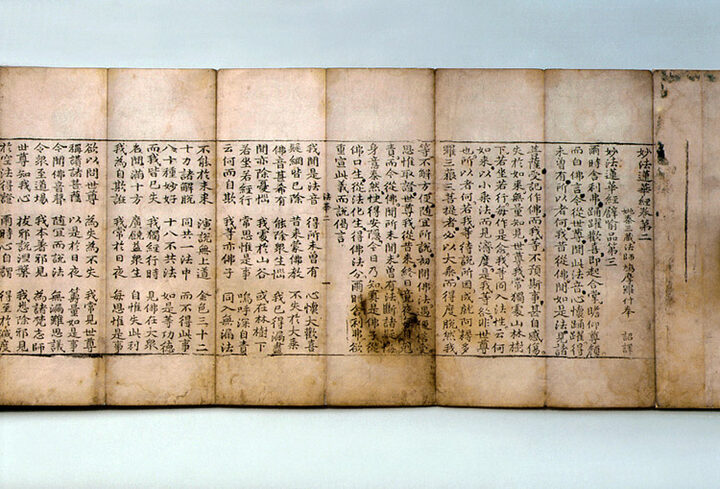 妙法蓮華經卷第二
姚秦三藏法師鳩摩羅什奉 詔譯
妙法蓮華經譬喻品第三
爾時舍利弗踊躍歡喜即起合掌瞻仰尊顏
而白佛言今從世尊聞此法音心懷踊躍得
未曾有所以者何我昔從佛聞如是法見諸
菩薩受記作佛而我等不預斯事甚自感傷
失於如來無量知見世尊我常獨處山林樹
下若坐若行每作是念我等同入法性云何
如來以小乘法而見濟度是我等咎非世尊
也所以者何若我等待說所因成就阿耨多
羅三藐三菩提者必以大乘而得度脫然我
等不解方便隨宜所說初聞佛法遇便信受
思惟取證世尊我從昔來終日竟夜每自
責而今從佛聞所未聞未曾有法斷諸疑悔
身意泰然快得安隱今日乃知真是佛子從
佛口生從法化生得佛法分爾時舍利弗欲
重宣此義而說偈言
法華二
我聞是法音 得所未曾有 心懷大歡喜
疑網皆已除 昔來蒙佛教 不失於大乘
佛音甚希有 能除眾生惱 我已得漏盡
聞亦除憂惱 我處於山谷 或在林樹下
若坐若經行 常思惟是事 嗚呼深自責
云何而自欺 我等亦佛子 同入無漏法
不能於未來 演說無上道 金色三十二
十力諸解脫 同共一法中 而不得此事
八十種妙好 十八不共法 如是等功德
而我皆已失 我獨經行時 見佛在大眾
名聞滿十方 廣饒益眾生 自惟失此利
我為自欺誑 我常於日夜 每思惟是事
欲以問世尊 為失為不失 我常見世尊
稱讚諸菩薩 以是於日夜 籌量如此事
今聞佛音聲 隨宜而說法 無漏難思議
令眾至道場 我本著邪見 為諸梵志師
世尊知我心 拔邪說涅槃 我悉除邪見
於空法得證 爾時心自謂 得至於滅度